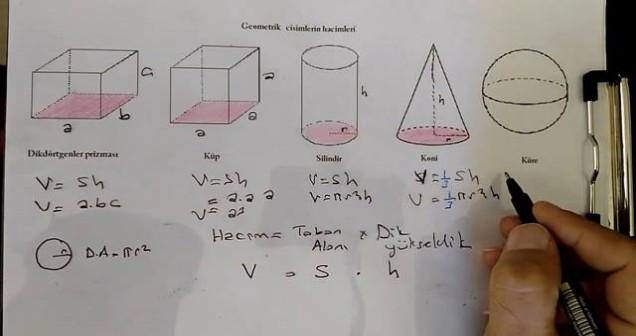 Geometrik cisimlerin hacimleri
c
b
a
a
a
a
h
r
h
r
Dikdörtgenler prizması
Küp
Silindir
Koni
Küre
V = Sh
V = a.b.c
V = Sh
= a.a.a
V = a³
V = Sh
V = πr²h
V = 1/3 Sh
V = 1/3 πr²h
r
D.A = πr²
Hacim = Taban Alanı x Dik yükseklik
V = S . h